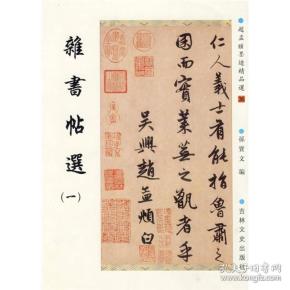 趙孟頫墨迹精品選
孫寶文 編
吉林文史出版社
雜書帖選
(一)
仁人義士有能指魯肅之
囷而實萊蕪之甑者乎
吳興趙孟頫白